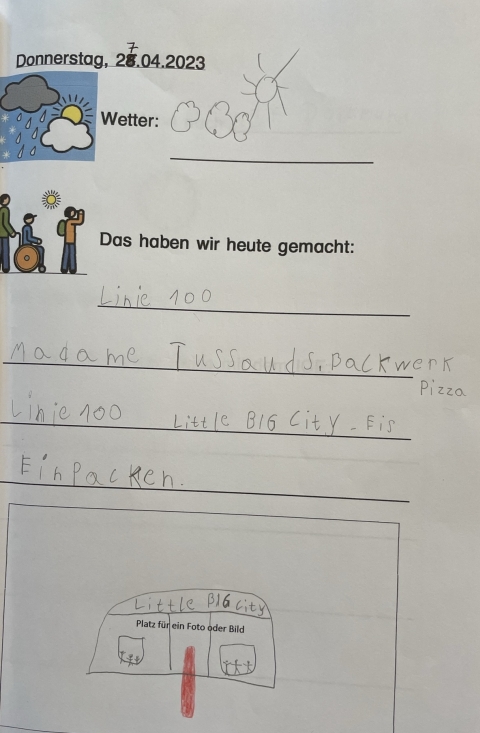 Donnerstag, 27.04.2023
Wetter:
Das haben wir heute gemacht:
Linie 100
Madame Tussauds. Backwerk
Pizza
Linie 100 Little BIG City - Eis
Einpacken.
Little BIG City
Platz für ein Foto oder Bild